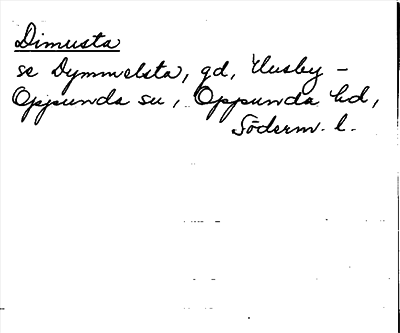 Dimusta
se Dymmelsta, gd, Husby -
Oppunda su, Oppunda hd,
Söderm. l.